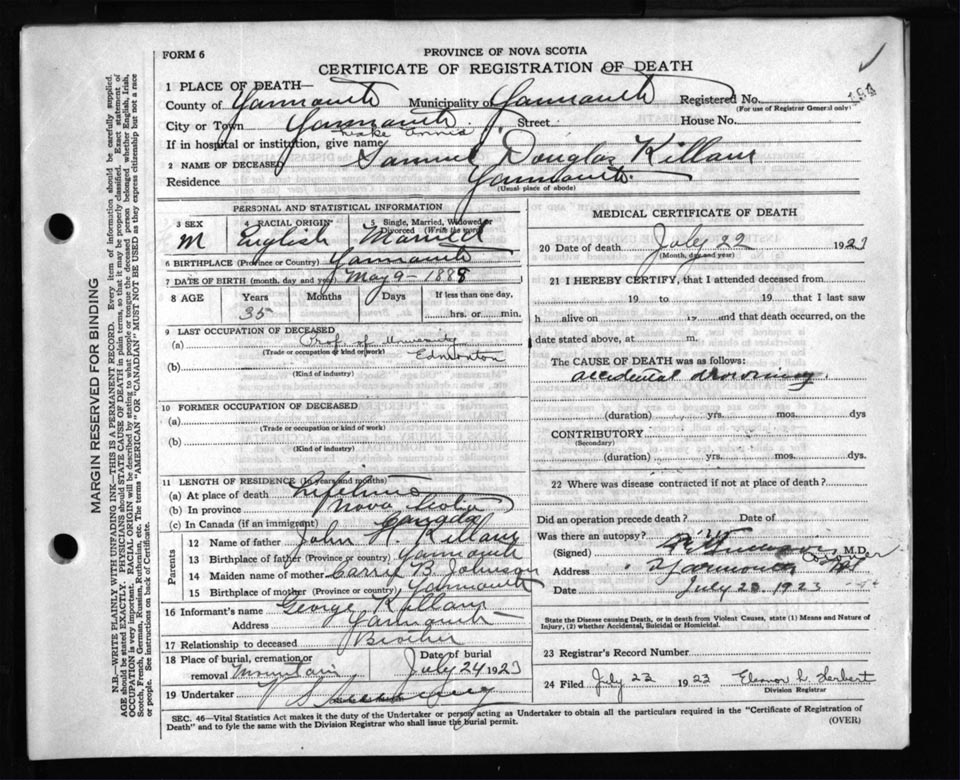 FORM 6
PROVINCE OF NOVA SCOTIA
CERTIFICATE OF REGISTRATION OF DEATH
1 PLACE OF DEATH—
County of Yarmouth Municipality of Yarmouth Registered No. 184
(For use of Registrar General only)
City or Town Yarmouth Street House No.
Lake Annis
If in hospital or institution, give name
2 NAME OF DECEASED Samuel Douglas Killam
Residence Yarmouth.
(Usual place of abode)
PERSONAL AND STATISTICAL INFORMATION
3 SEX 4 RACIAL ORIGIN 5 Single, Married, Widowed or Divorced (Write the word)
M English Married
6 BIRTHPLACE (Province or Country) Yarmouth
7 DATE OF BIRTH (month, day and year) May 9-1888
8 AGE Years Months Days If less than one day,
35 hrs. or min.
9 LAST OCCUPATION OF DECEASED
(a) Prof. of University
(Trade or occupation or kind of work) Edmonton
(b)
(Kind of industry)
10 FORMER OCCUPATION OF DECEASED
(a)
(Trade or occupation or kind of work)
(b)
(Kind of industry)
11 LENGTH OF RESIDENCE (In years and months)
(a) At place of death Lifetime
(b) In province Nova Scotia
(c) In Canada (if an immigrant) Canada
Parents
12 Name of father John H. Killam
13 Birthplace of father (Province or country) Yarmouth
14 Maiden name of mother Carry B. Johnson
15 Birthplace of mother (Province or country) Yarmouth
16 Informant's name George Killam
Address Yarmouth
17 Relationship to deceased Brother
18 Place of burial, cremation or removal Mountain Date of burial July 24 1923
19 Undertaker
MEDICAL CERTIFICATE OF DEATH
20 Date of death July 22 1923
(Month, day and year)
21 I HEREBY CERTIFY, that I attended deceased from
19 to 19 that I last saw
h alive on 19 and that death occurred, on the
date stated above, at m.
The CAUSE OF DEATH was as follows:
accidental drowning
(duration) yrs. mos. dys
CONTRIBUTORY
(Secondary)
(duration) yrs. mos. dys.
22 Where was disease contracted if not at place of death?
Did an operation precede death? Date of
Was there an autopsy?
(Signed) M.D.
Coroner
Address Yarmouth
Date July 23. 1923
State the Disease causing Death, or in death from Violent Causes, state (1) Means and Nature of Injury, (2) whether Accidental, Suicidal or Homicidal.
23 Registrar's Record Number
24 Filed July 23 1923 Eleanor L Herbert
Division Registrar
SEC. 46—Vital Statistics Act makes it the duty of the Undertaker or person acting as Undertaker to obtain all the particulars required in the "Certificate of Registration of
Death" and to fyle the same with the Division Registrar who shall issue the burial permit. (OVER)
MARGIN RESERVED FOR BINDING
N.B.—WRITE PLAINLY WITH UNFADING INK—THIS IS A PERMANENT RECORD. Every item of information should be carefully supplied.
AGE should be stated EXACTLY. PHYSICIANS should STATE CAUSE OF DEATH in plain terms, so that it may be properly classified. Exact statement of
OCCUPATION is very important. RACIAL ORIGIN will be described by stating to what people or tongue the deceased person belonged whether English, Irish,
Scotch, French, German, Russian, Ruthenian, etc. The terms "AMERICAN" OR "CANADIAN" MUST NOT BE USED as they express citizenship but not a race
or people. See instructions on back of Certificate.